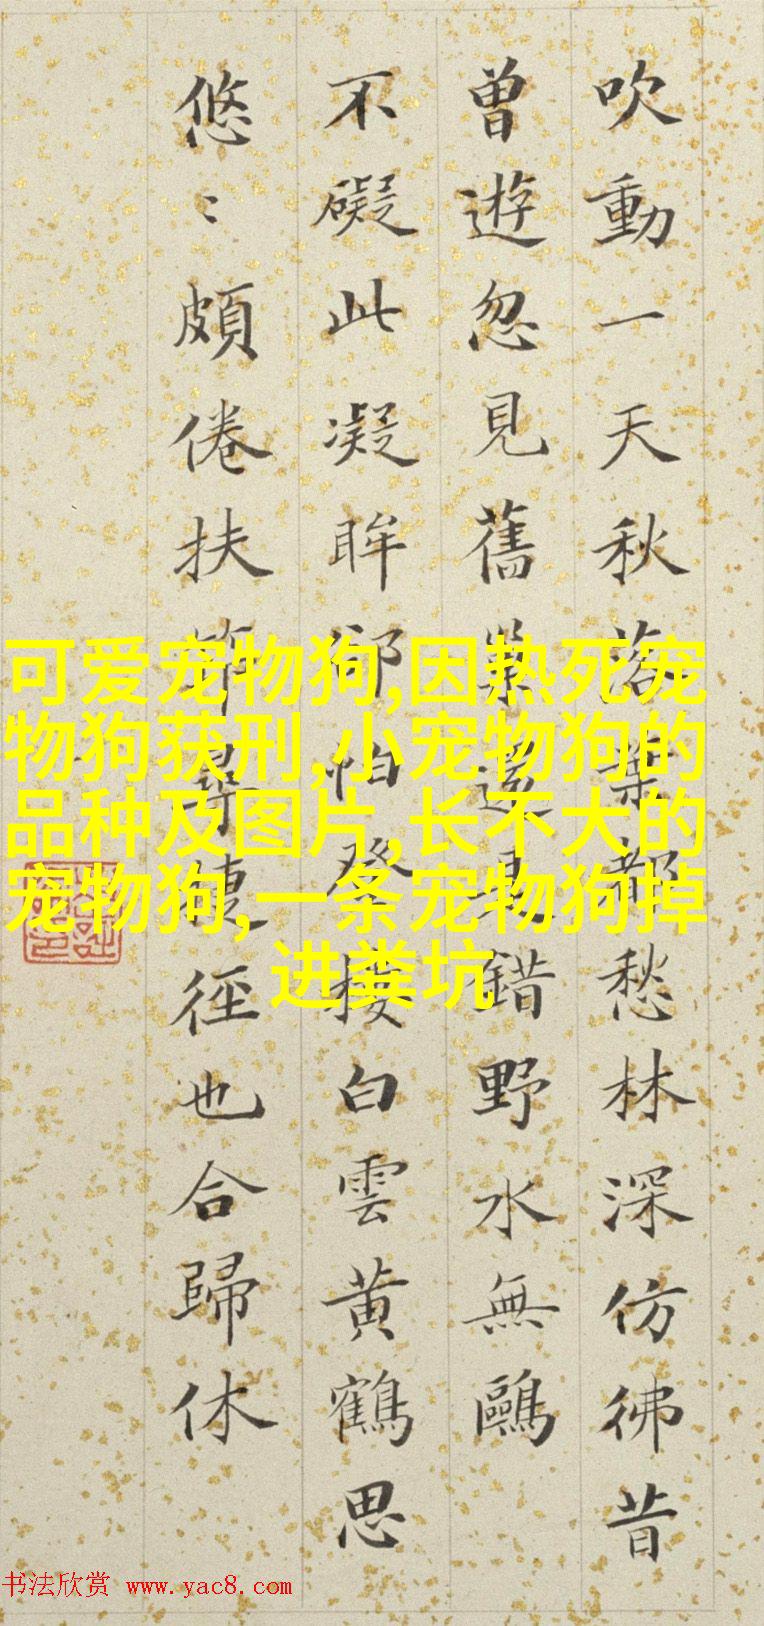 吹動一天秋落葉都愁林深仿彿昔
曾遊忽見舊巢還是錯野水無鷗
不礙此凝眸卻怕登樓白雲黃鶴思
悠〻頗倦扶筇尋捷徑也合歸休
可爱宠物狗,因热死宠
物狗获刑,小宠物狗的
品种及图片,长不大的
宠物狗,一条宠物狗掉
进粪坑
书法欣赏 www.yac8.com